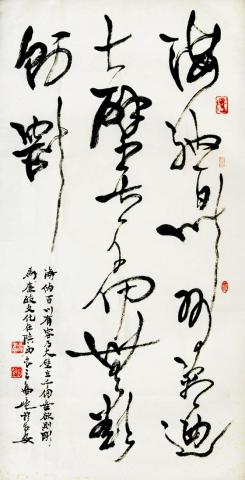 海納百川有容迺
大壁立千仞無欲
則剛
海納百川有容乃大壁立千仞無欲則剛
為廉政文化在陝西